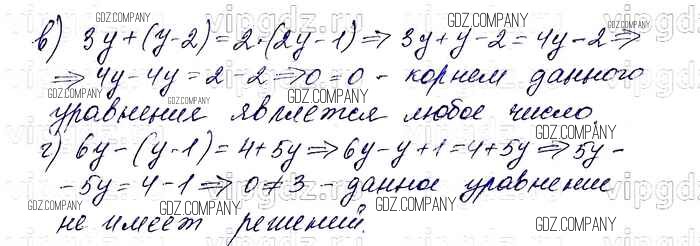 GDZ.COMPANY GDZ.COMPANY
в) 3y+(y-2)=2·(2y-1)⇒3y+y-2=4y-2⇒
GDZ.COMPANY
⇒4y-4y=2-2⇒0=0 - корнем данного
GDZ.COMPANY GDZ.COMPANY
уравнения является любое число.
GDZ.COMPANY
г) 6y-(y-1)=4+5y⇒6y-y+1=4+5y⇒5y-
GDZ.COMPANY
-5y=4-1⇒0≠3 - данное уравнение
GDZ.COMPANY GDZ.COMPANY GDZ.COMPANY
не имеет решений.